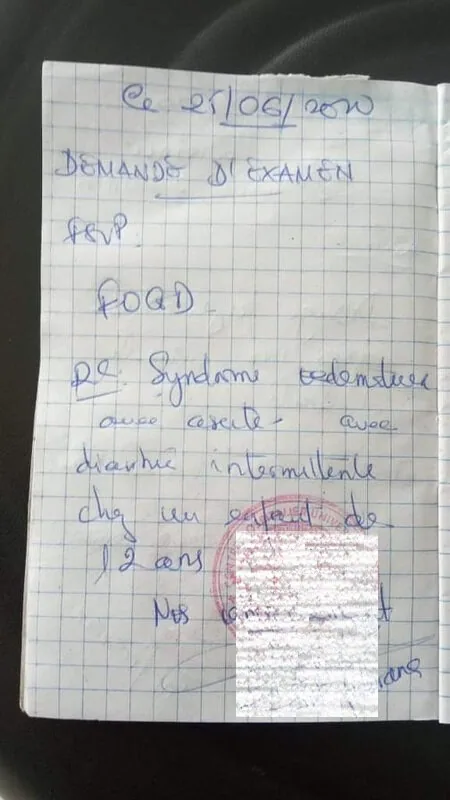 Ce 25/06/2020
DEMANDE D'EXAMEN
FSVP.
FOGD
RC: Syndrome oedemateux
avec ascite - avec
diarrhée intermittente
chez un enfant de
12 ans
Nos